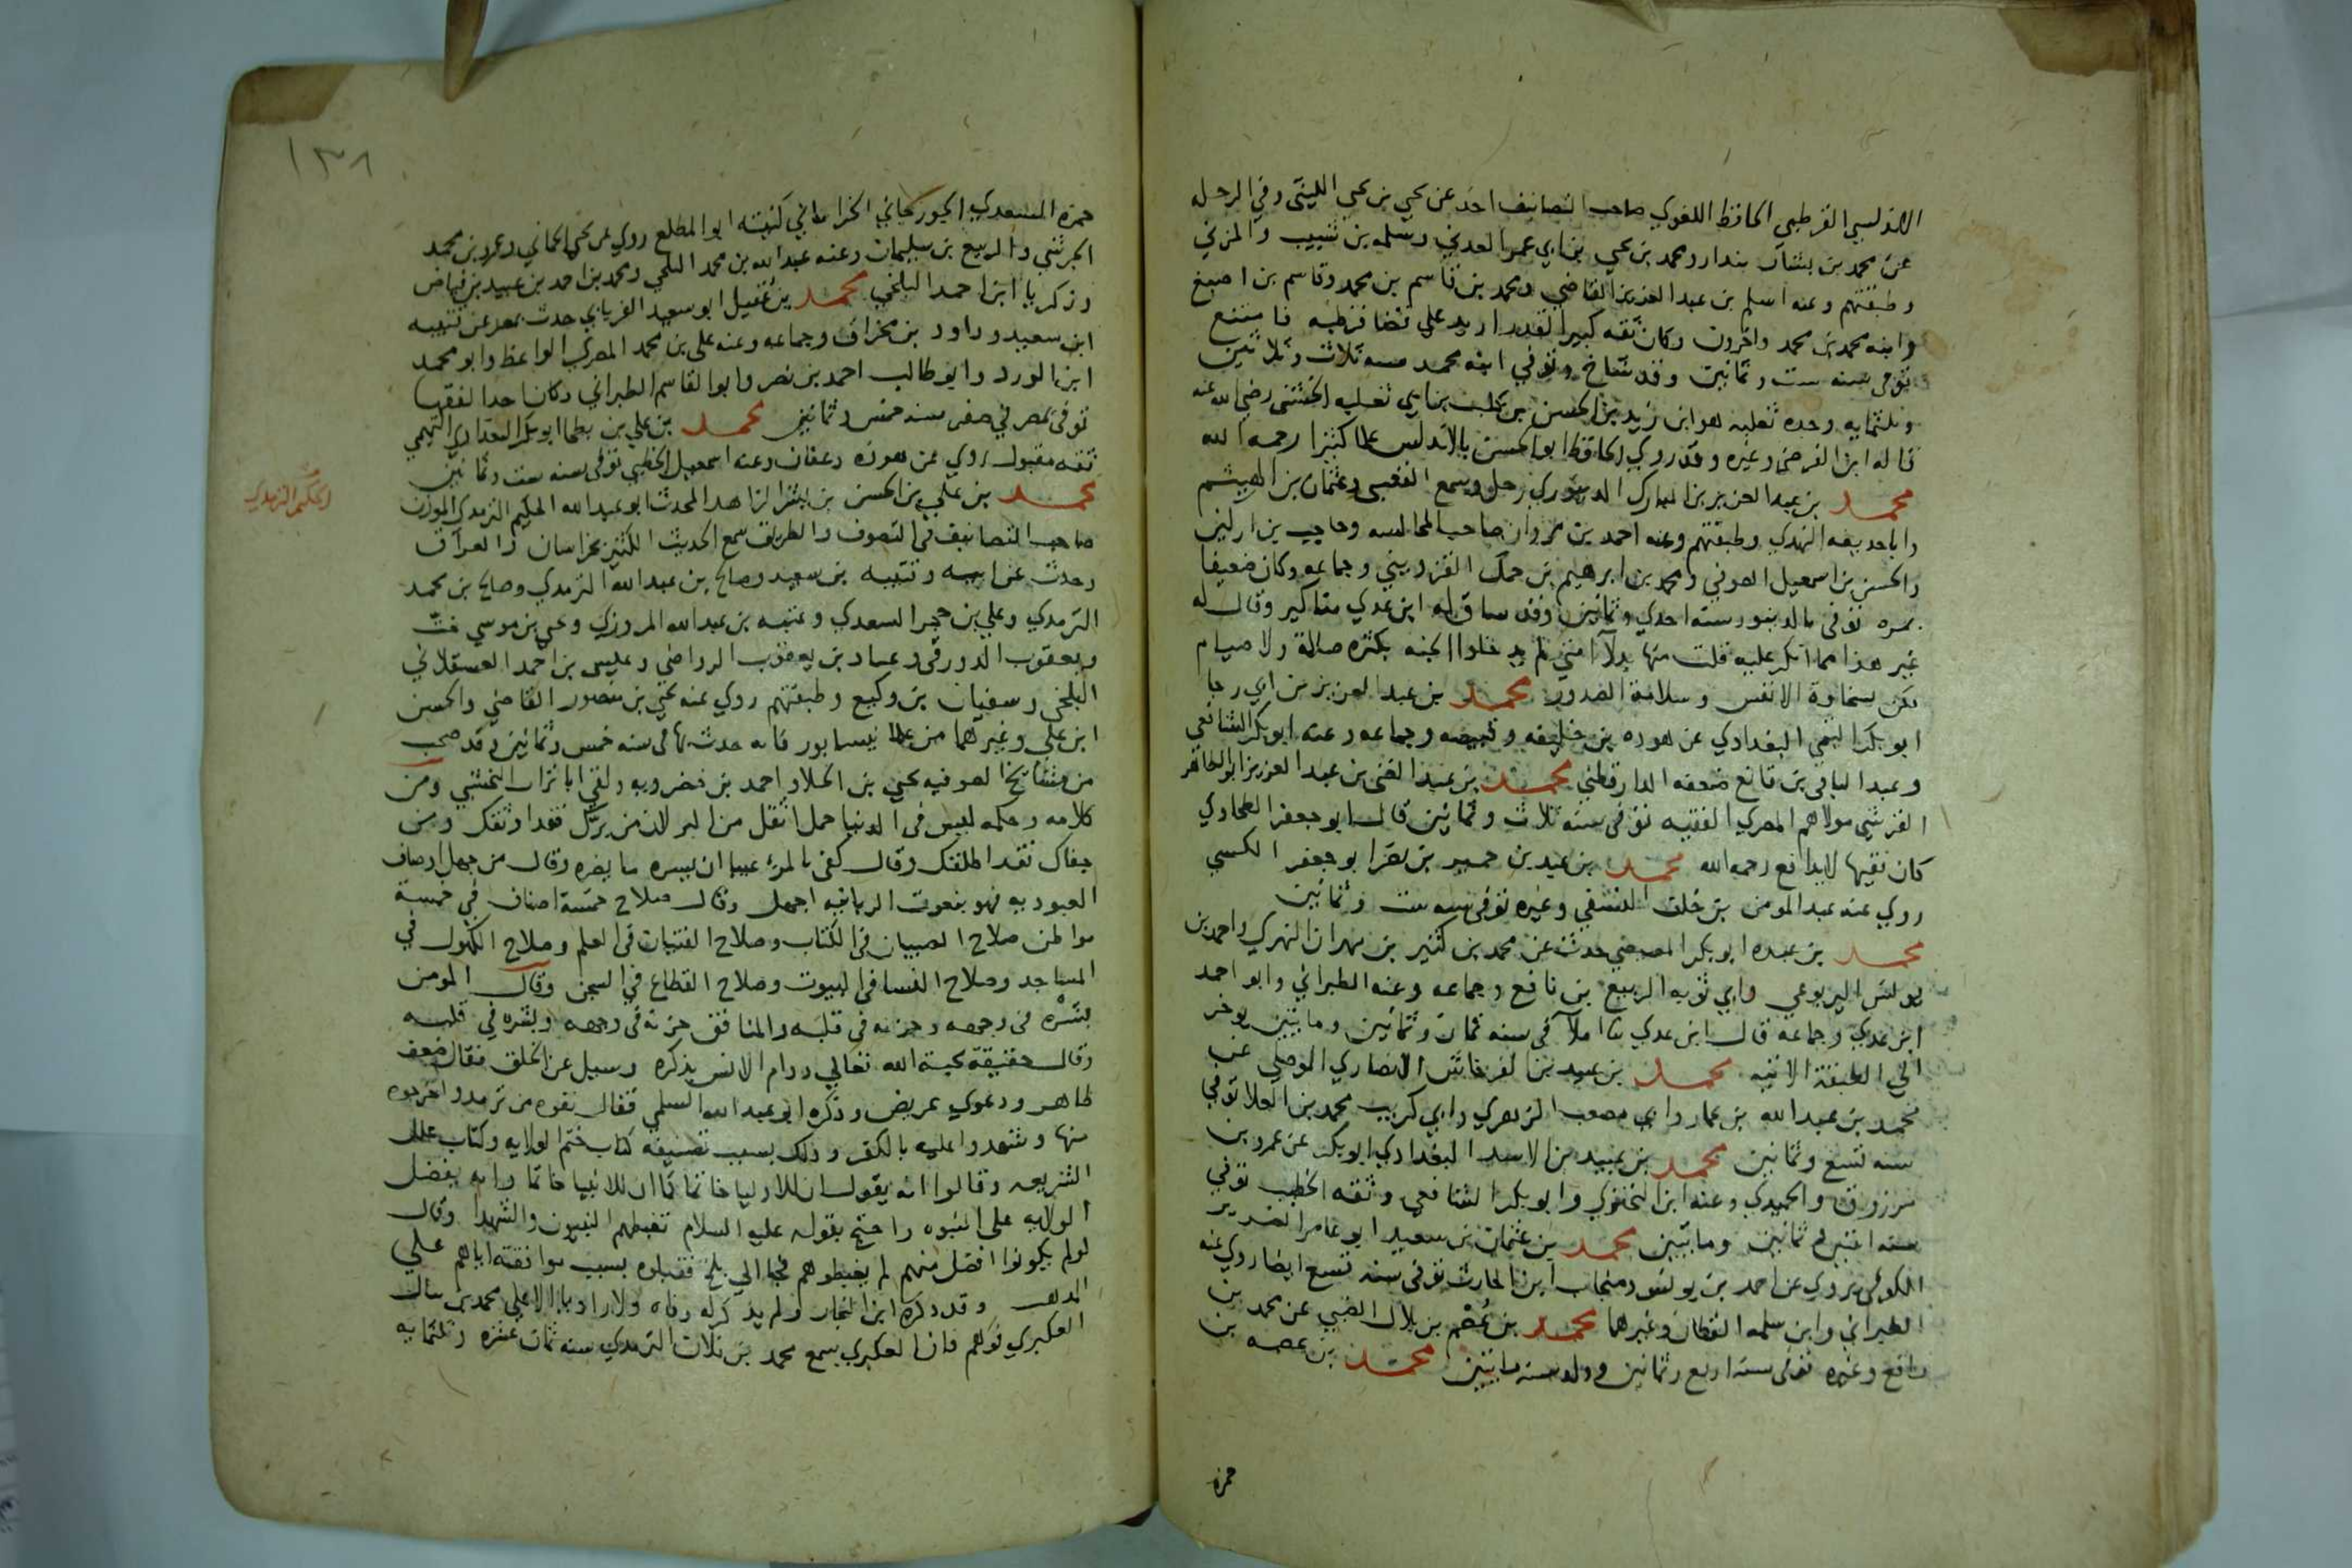 الاندلسي القرطبي الحافظ اللغوي صاحب التصانيف اخذ عن يحيى بن يحيى الليثي وفي الرحله
عن محمد بن بشار بندار ومحمد بن يحيى بن ابي عمر العدني وسلمه بن شبيب والمزني
وطبقتهم وعنه اسلم بن عبد العزيز القاضي ومحمد بن قاسم بن محمد وقاسم بن اصبغ
وابنه محمد بن محمد واخرون وكان ثقه كبير القدر اريد على قضا قرطبه فامتنع
توفي سنه ست وثمانين وقد شاخ وتوفي ابنه محمد سنه ثلاث وثلاثين
وثلثمايه وجده ثعلبه هو ابن زيد بن الحسن بن كلب بن ابي ثعلبه الخشني رضي الله عنه
قاله ابن الفرضي وغيره وقد روي الحافظ ابو الحسن بالاندلس علما كثيرا رحمه الله
محمد بن عبد العزيز بن المبارك الدينوري رحل وسمع القعنبي وعثمان بن الهيثم
وابا حذيفه النهدي وطبقتهم وعنه احمد بن مروان صاحب المجالسه وحاجب بن اركين
والحسن بن اسمعيل الصوفي ومحمد بن ابرهيم بن حمك القزويني وجماعه وكان ضعيفا
بمره توفي بالدينور سنه احدي وثمانين وقد ساق له ابن عدي مناكير وقال له
غير هذا مما انكر عليه قلت منها بدلا امتي لم يدخلوا الجنه بكثره صلاة ولا صيام
لكن بسخاوة الانفس وسلامة الصدور محمد بن عبد العزيز بن ابي رجا
ابو بكر التيمي البغدادي عن هوذه بن خليفه وقبيصه وجماعه وعنه ابو بكر الشافعي
وعبد الباقي بن قانع ضعفه الدارقطني محمد بن عبد الغني بن عبد العزيز ابو الطاهر
القرشي مولاهم المصري الفقيه توفي سنه ثلاث وثمانين قال ابو جعفر الطحاوي
كان فقيها لا يدافع رحمه الله محمد بن عبد بن حميد بن نصر ابو جعفر الكسي
روي عنه عبد المومن بن خلف النسفي وغيره توفي سنه ست وثمانين
محمد بن عبده ابو بكر المصيصي حدث عن محمد بن كثير بن مهران النهري واحمد بن
يونس اليربوعي وابي توبه الربيع بن نافع وجماعه وعنه الطبراني وابو احمد
ابن عدي وجماعه قال ابن عدي ثنا املا في سنه ثمان وثمانين ومايتين يوخر
الي الطبقة الاتيه محمد بن عبيد بن الفرخاش الانصاري الموصلي عن
محمد بن عبد الله بن عمار وابي مصعب الزهري وابي كريب محمد بن العلا توفي
سنه تسع وثمانين محمد بن عبيد بن الاسد البغدادي ابو بكر عن عمرو بن
مرزوق والحميدي وعنه ابن البختري وابو بكر الشافعي وثقه الخطيب توفي
سنه اثنين وثمانين ومايتين محمد بن عثمان بن سعيد ابو عامر الضرير
الكوفي يروي عن احمد بن يونس ومنجاب ابن الحارث توفي سنه تسع ايضا روي عنه
الطبراني وابن سلمه القطان وغيرهما محمد بن عُصْم بن بلال الضبي عن محمد بن
رافع وغيره توفي سنه اربع وثمانين وولد سنه مايتين محمد بن عصمه بن
حمزه
١٣٨
حمزه السعدي الجوزجاني الخراساني كنيته ابو المطلع روي عن يحيى الحماني وعمرو بن محمد
الجرشي والربيع بن سليمان وعنه عبد الله بن محمد البلخي ومحمد بن احمد بن عبيد بن فياض
وزكريا ابن احمد البلخي محمد بن عقيل ابو سعيد الفريابي حدث بمصر عن قتيبه
ابن سعيد وداود بن مخراق وجماعه وعنه علي بن محمد المصري الواعظ وابو محمد
ابن الورد وابو طالب احمد بن نصر وابو القاسم الطبراني وكان احد الفقها
توفي بمصر في صفر سنه خمس وثمانين محمد بن علي بن بطحا ابو بكر البغدادي التميمي
ثقه مقبول روي عن هوذه وعفان وعنه اسمعيل الخطبي توفي سنه ست وثمانين
محمد بن علي بن الحسن بن بشر الزاهد المحدث ابو عبد الله الحكيم الترمذي الموذن
الحكيم الترمذي
صاحب التصانيف في التصوف والطريق سمع الحديث الكثير بخراسان والعراق
وحدث عن ابيه وقتيبه بن سعيد وصالح بن عبد الله الترمذي وصالح بن محمد
الترمذي وعلي بن حجر السعدي وعتبه بن عبد الله المروزي ويحيى بن موسي خت
ويعقوب الدورقي وعباد بن يعقوب الرواجني وعيسى بن احمد العسقلاني
البلخي وسفيان بن وكيع وطبقتهم روي عنه يحيى بن منصور القاضي والحسن
ابن علي وغيرهما من علما نيسابور فانه حدث بها في سنه خمس وثمانين وقد صحب
من مشايخ الصوفيه يحيى بن الجلا واحمد بن خضرويه ولقي ابا تراب النخشبي ومن
كلامه وحكمه ليس في الدنيا حمل اثقل من البر لان من برّك فقد اوثقك ومن
جفاك فقد اطلقك وقال كفى بالمرء عيبا ان يسره ما يضره وقال من جهل اوصاف
العبوديه فهو بنعوت الربانيه اجهل وقال صلاح خمسة اصناف في خمسة
مواطن صلاح الصبيان في الكتاب وصلاح الفتيان في العلم وصلاح الكهول في
المساجد وصلاح النسا في البيوت وصلاح القطاع في السجن وقال المومن
بشره في وجهه وحزنه في قلبه والمنافق حزنه في وجهه وبشره في قلبه
وقال حقيقة محبة الله تعالي دوام الانس بذكره وسيل عن الخلق فقال ضعف
ظاهر ودعوي عريض وذكره ابو عبد الله السلمي فقال نفوه من ترمذ واخرجوه
منها وشهدوا عليه بالكفر وذلك بسبب تصنيفه كتاب ختم الولايه وكتاب علل
الشريعه وقالوا انه يقول ان للاوليا خاتما كما ان للانبيا خاتما وانه يفضل
الولايه على النبوه واحتج بقوله عليه السلام تغبطهم النبيون والشهدا وقال
لو لم يكونوا افضل منهم لم يغبطوهم فجا الي بلخ فقبلوه بسبب موافقته اياهم علي
المذهب وقد ذكره ابن النجار ولم يذكر له وفاه ولا راويا الا علي محمد بن
العكبري فوهم فان العكبري سمع محمد بن فلان الترمذي سنه ثمان عشره وثلثمايه